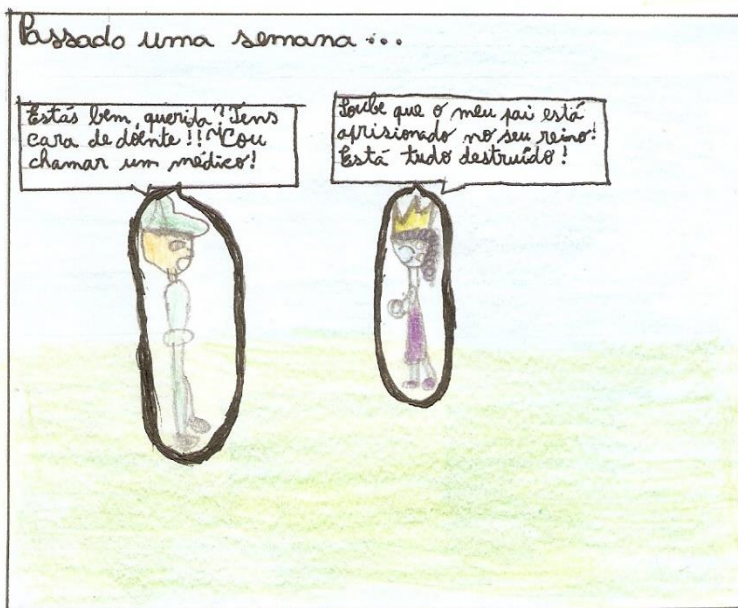 Passado uma semana...
Estás bem, querida? Tens
cara de doente!! Vou
chamar um médico!
Soube que o meu pai está
aprisionado no seu reino!
Está tudo destruído!